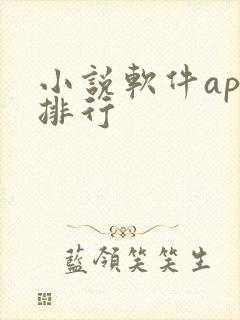 小說軟件ap
排行
藍領笑笑生